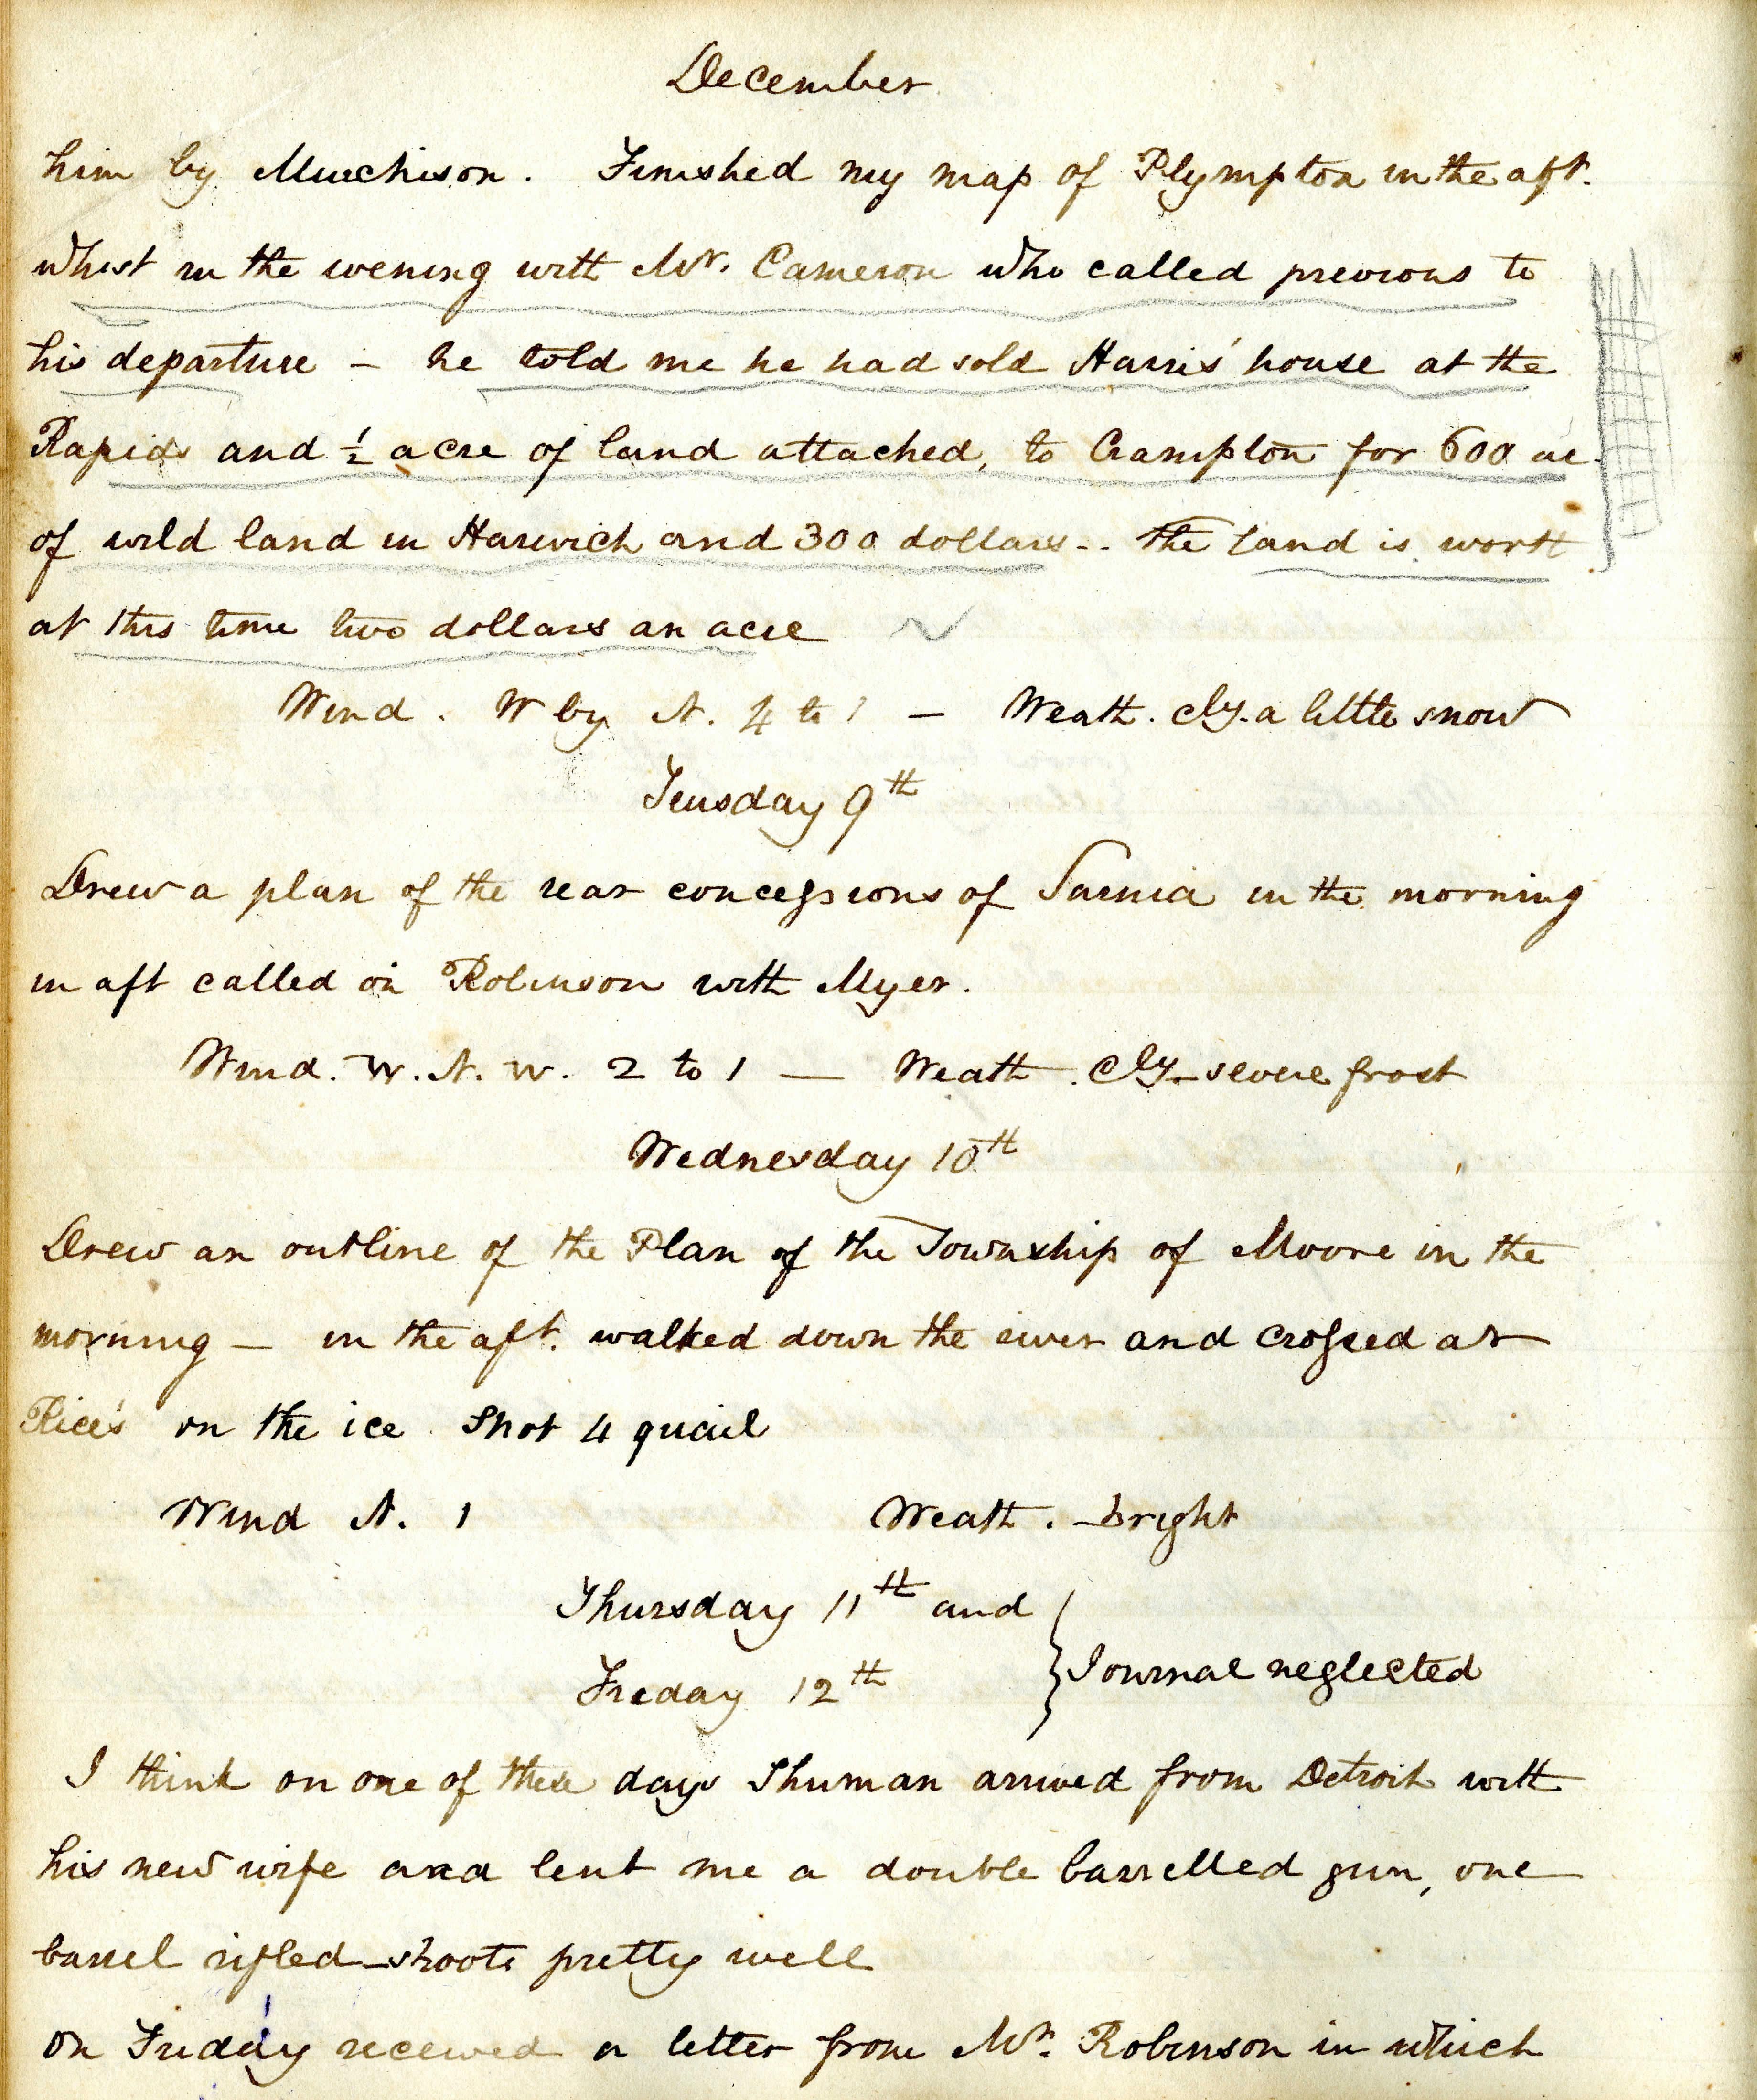 December
him by Murchison. Finished my map of Plympton in the aft.
Whist in the evening with Mr. Cameron who called previous to
his departure – he told me he had sold Harris' house at the
Rapids and ½ acre of land attached, to Crampton for 600 ac.
of wild land in Harwich and 300 dollars -- the land is worth
at this time two dollars an acre
Wind. W by N. 4 to 1 – Weath. cly. a little snow
Teusday 9th
Drew a plan of the rear concessions of Sarnia in the morning
in aft called on Robinson with Myer.
Wind. W. N. W. 2 to 1 — Weath. Cly – severe frost
Wednesday 10th
Drew an outline of the Plan of the Township of Moore in the
morning – in the aft. walked down the river and crossed at
Rice's on the ice. Shot 4 quail
Wind N. 1 Weath. – bright
Thursday 11th and
Friday 12th } Journal neglected
I think on one of these days Shuman arrived from Detroit with
his new wife and lent me a double barrelled gun, one
barrel rifled – shoots pretty well
On Friday received a letter from Mr. Robinson in which